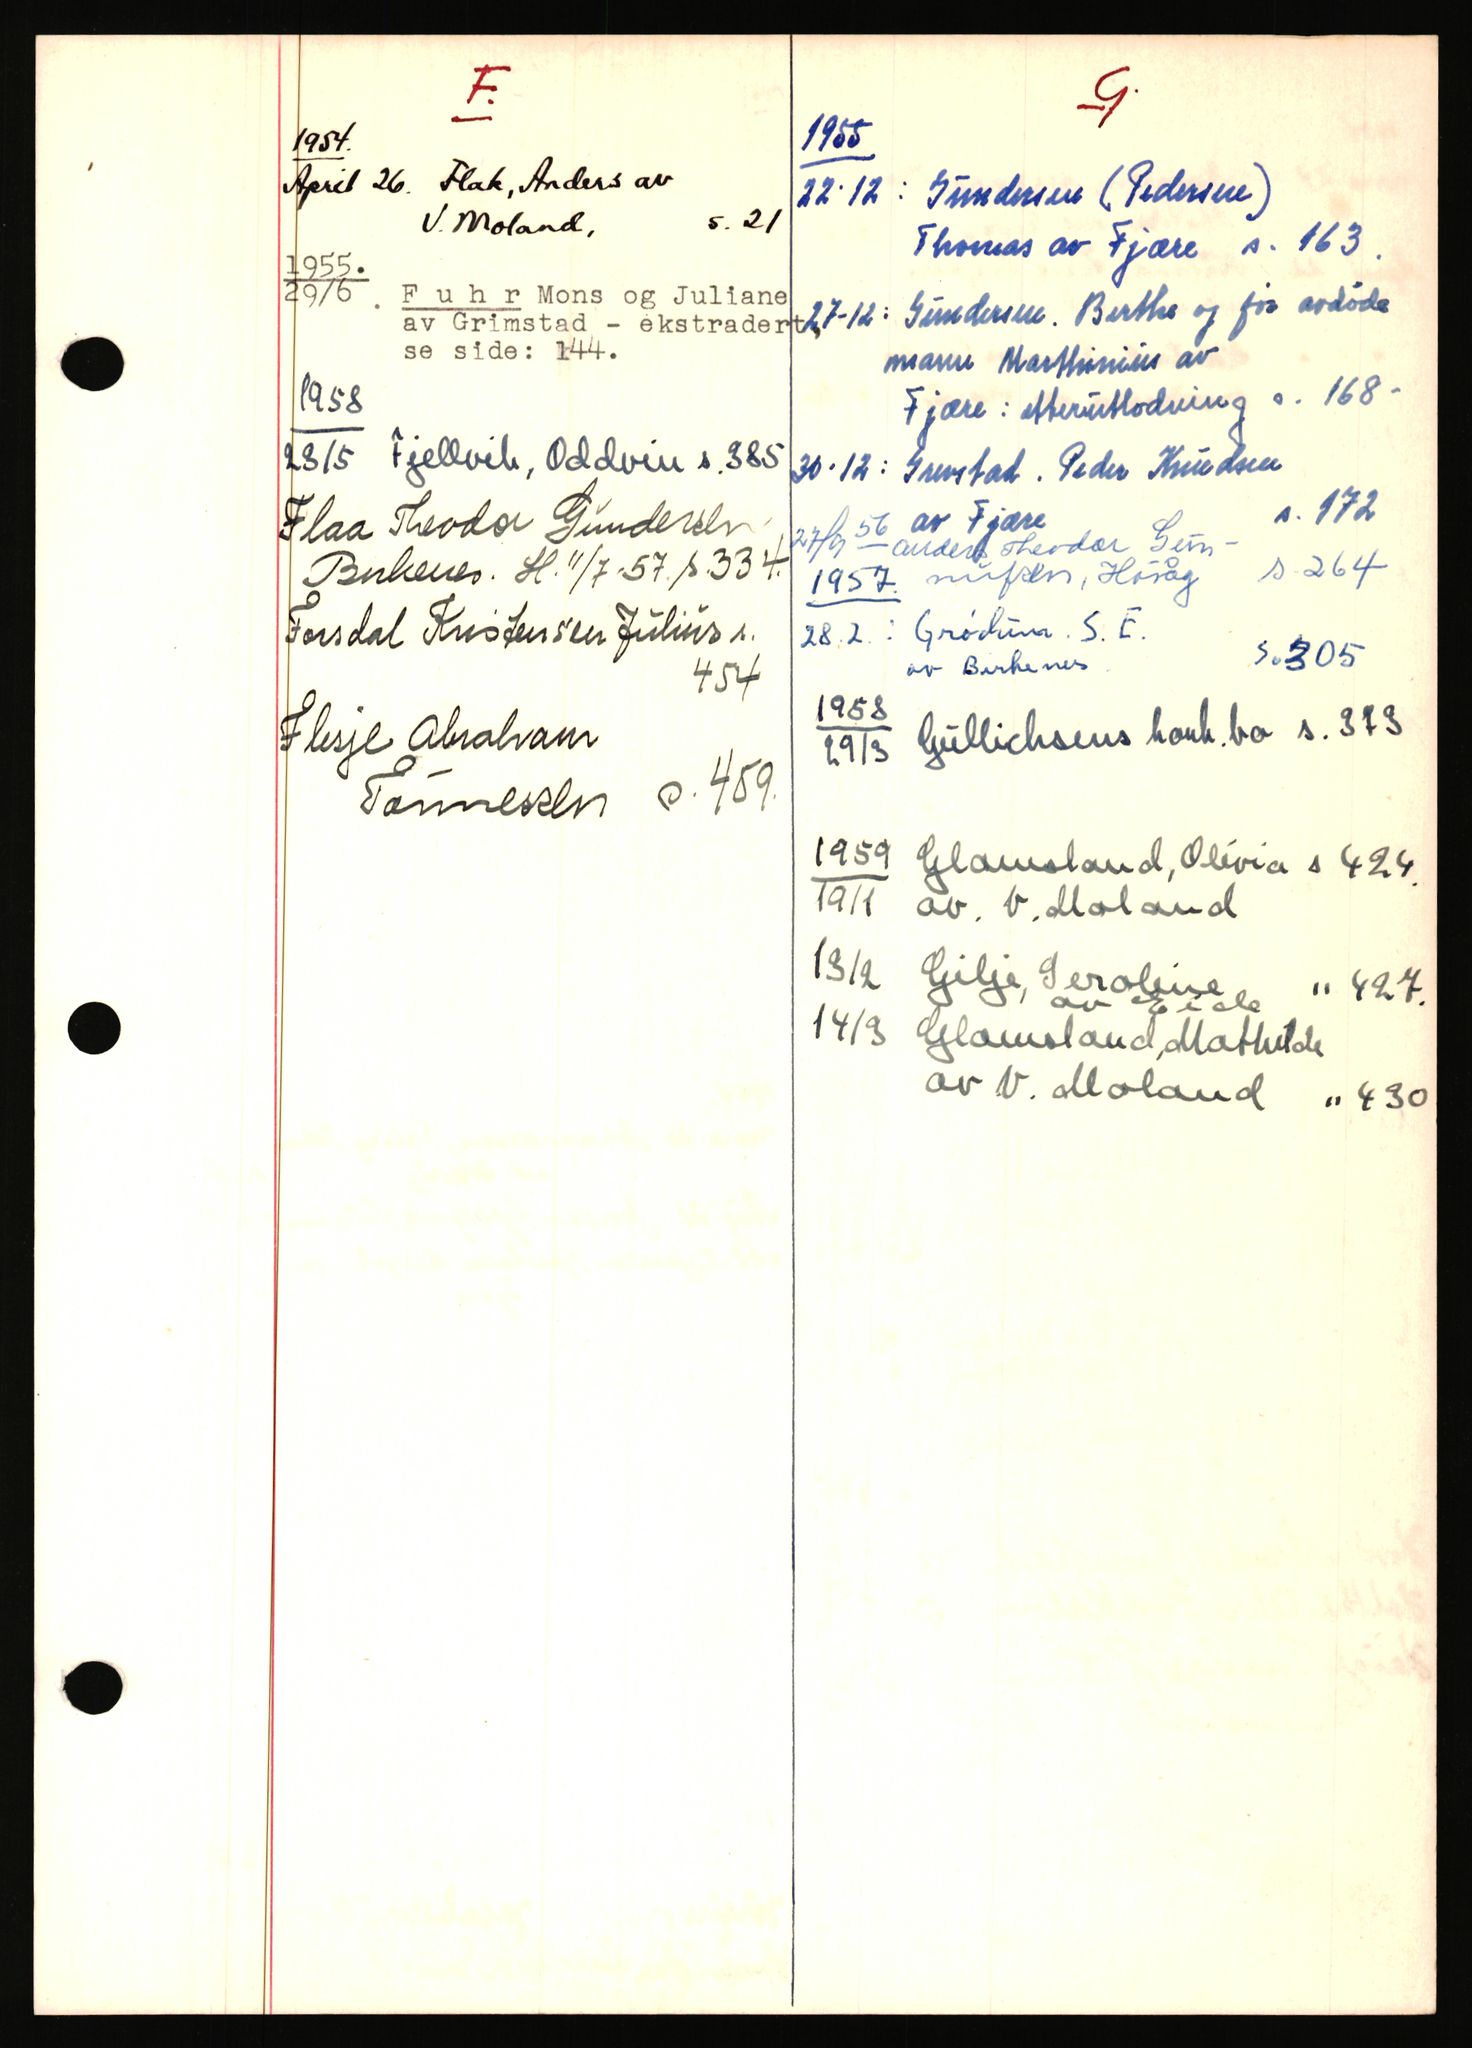 F.
1954.
April 26. Flak, Anders av
V. Moland, s. 21
1955.
29/6 . F u h r Mons og Juliane
av Grimstad - ekstradert,
se side: 144.
1958
23/5 Fjellvik, Oddvin s. 385
Flaa Theodor Gundersen
Birkenes. H. 11/7-57. s. 334.
Forsdal Kristensen Julius s.
454
Flesje Abraham
Tønnessen s. 459.
G.
1955
22-12: Gundersen (Pedersen)
Thomas av Fjære s. 163.
27-12: Gundersen. Berthe og før avdøde
mann Marthinius av
Fjære: etterutlodning s. 168-
30-12: Grevstad. Peder Knudsen
av Fjære s. 172
27/9 56 Anders Theodor Gun-
nufsen, Høvåg s. 264
1957.
28.2.: Grødum. S. E.
av Birkenes. s. 305
1958
29/3 Gullichsens konk.bo s. 373
1959 Glamsland, Olivia s 424.
19/1 av. V. Moland
13/2 Gilje, Seroline " 427.
av Eide
14/3 Glamsland, Mathilde
av V. Moland " 430